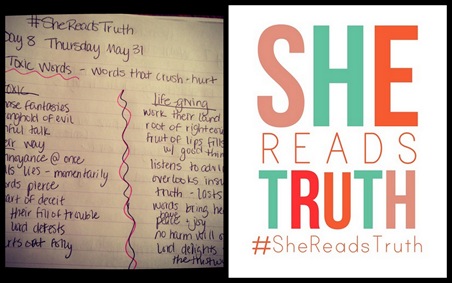 #SheReadsTruth
Day 8 Thursday May 31
Toxic Words - words that crush - hurt
toxic
fantasies
of evil
talk
way
@ once
lies - momentarily
pierce
of deceit
their fill of trouble
detests
folly
life-giving
work their land
root of righteou
fruit of lips fills
w/ good thin
listens to advi
overlooks insu
truth - lasts
words bring he
have
peace + joy
no harm
Lord delights
the
SHE
READS
TRUTH
#SheReadsTruth